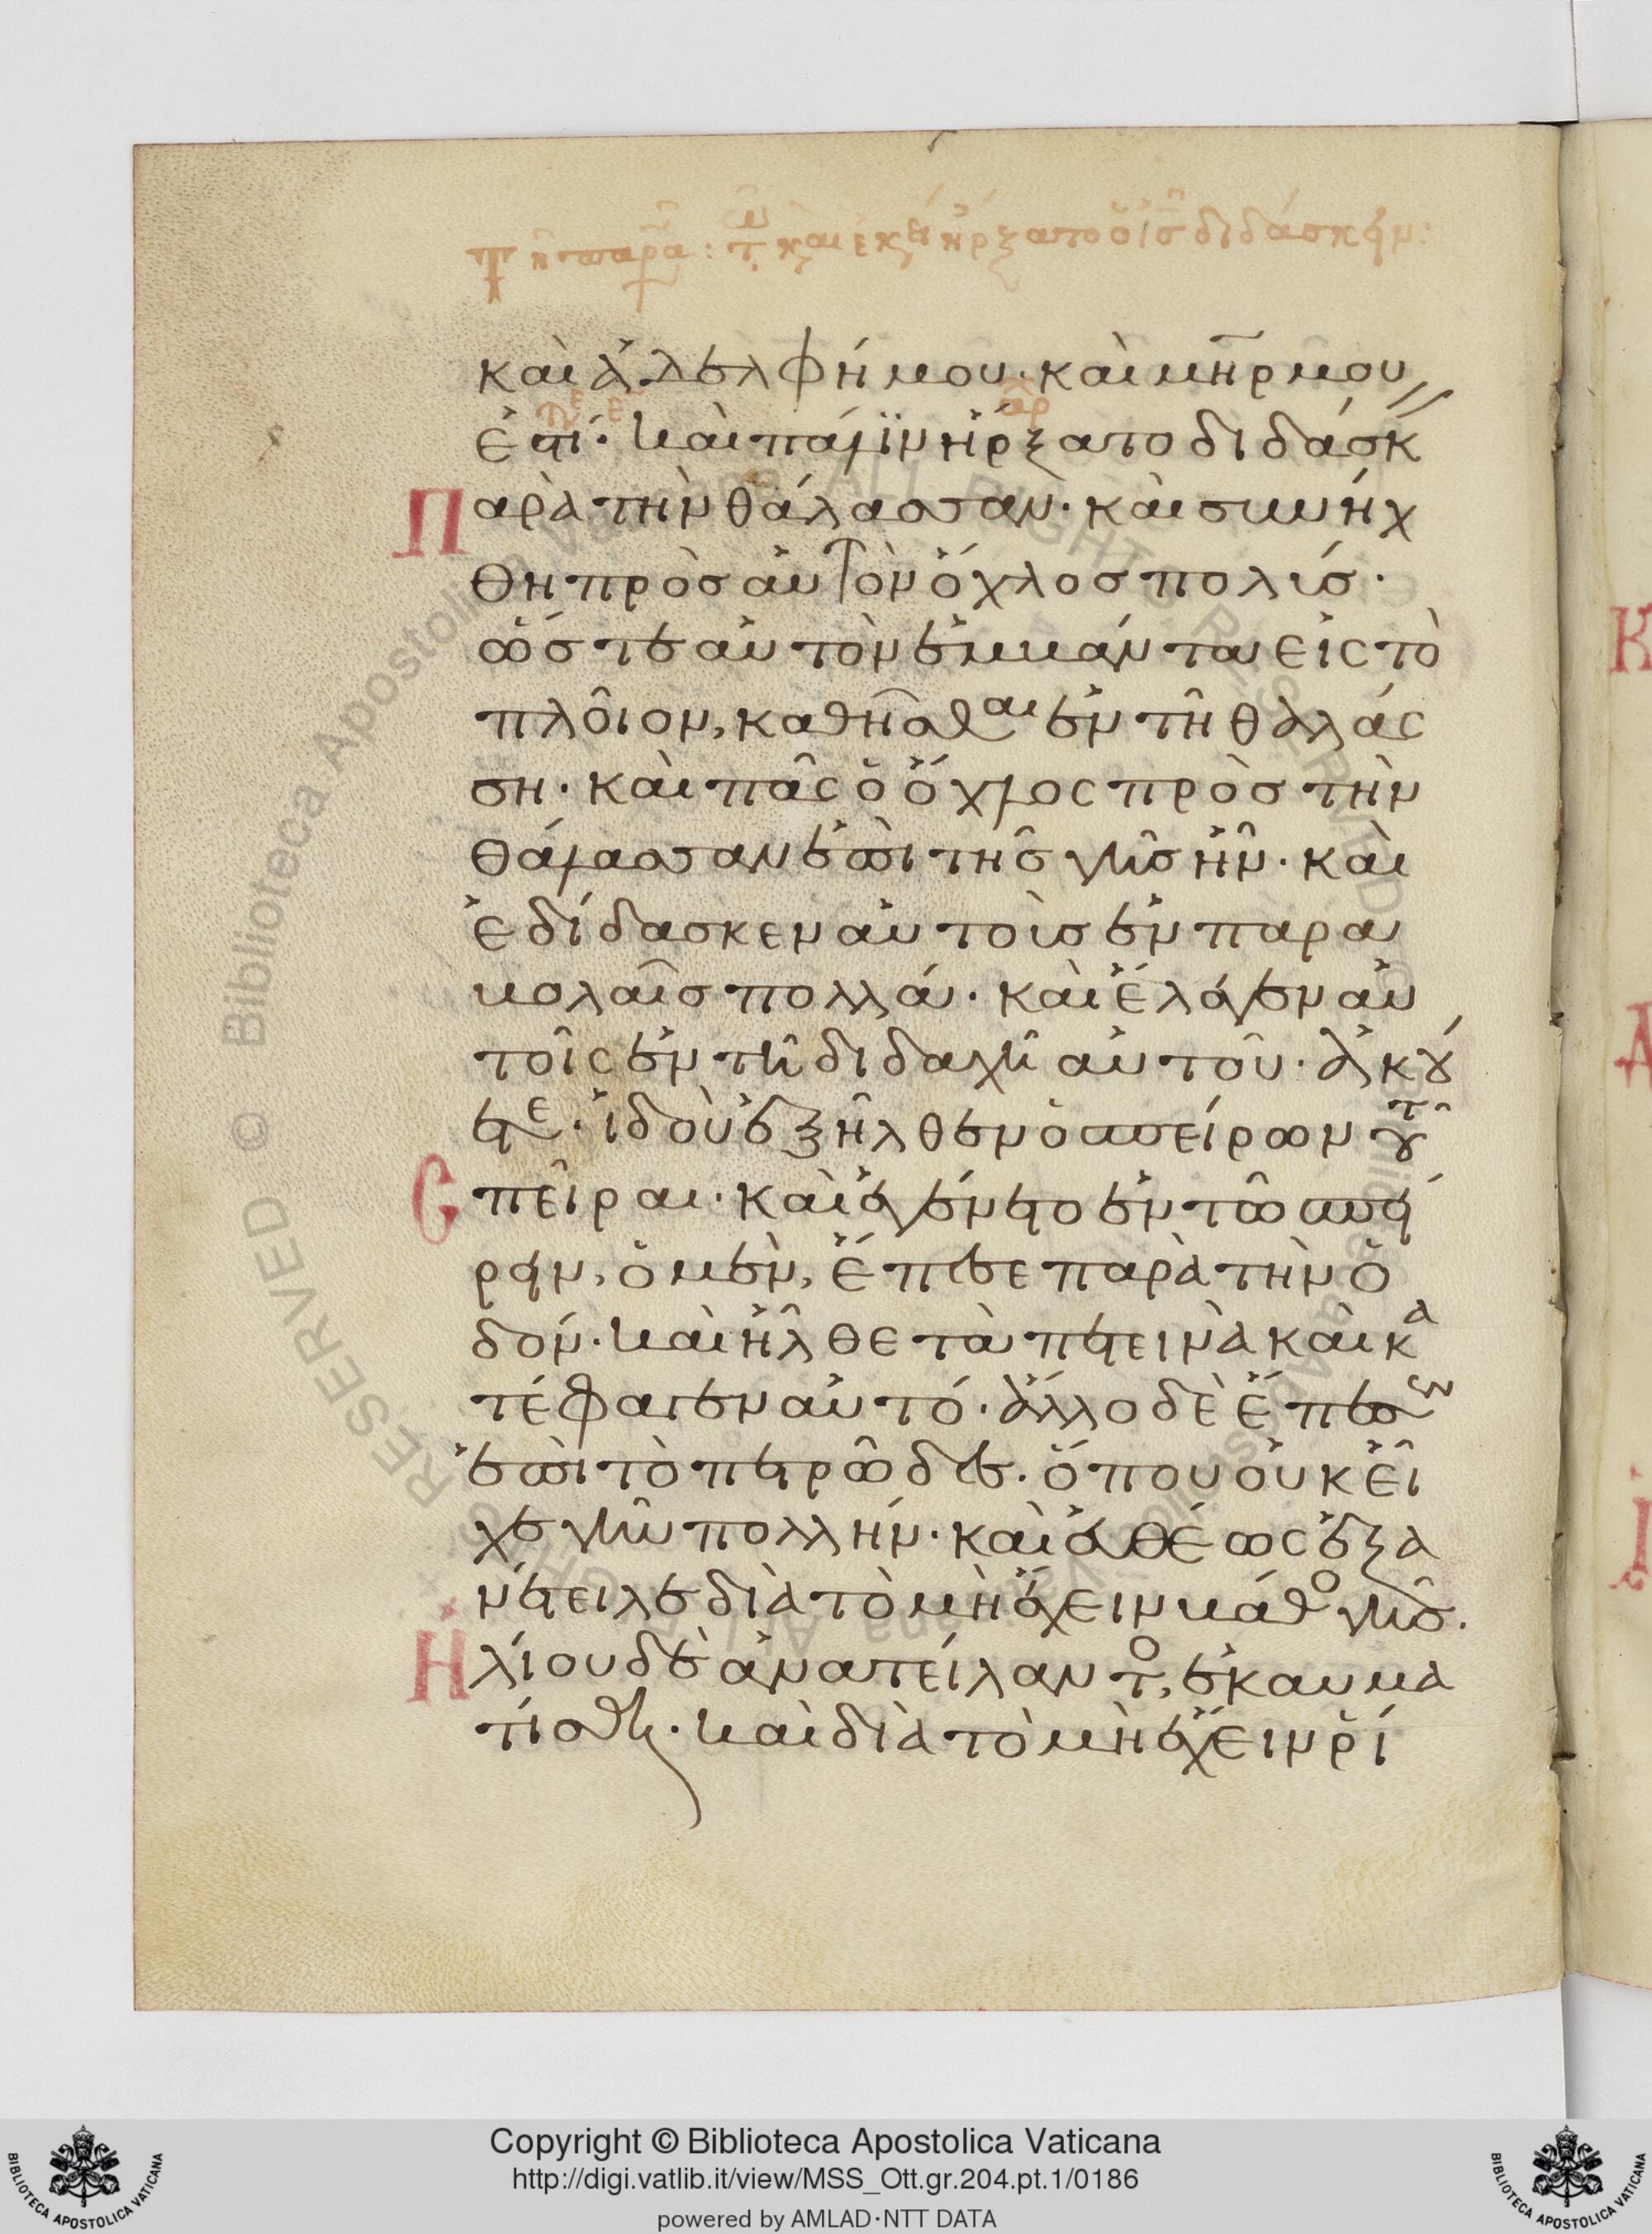 καὶ ἀδελφή μου· καὶ μῆρ μου
ἐστί· καὶ πάλιν ἤρξατο διδάσκ
Παρὰ τὴν θάλασσαν· καὶ συνήχ
θη πρὸς αὐτὸν ὄχλος πολύς·
ὥστε αὐτὸν ἐμβάντα εἰς τὸ
πλοῖον, καθῆσθαι ἐν τῆ θαλάσ
ση· καὶ πᾶς ὁ ὄχλος πρὸς τὴν
θάλασσαν ἐπὶ τῆς γῆς ἦν· καὶ
ἐδίδασκεν αὐτοὺς ἐν παρα
βολαῖς πολλά· καὶ ἔλεγεν αὐ
τοῖς ἐν τῆ διδαχῆ αὐτοῦ· ἀκού
ετε· ἰδοὺ ἐξῆλθεν ὁ σπείρων τοῦ
Σπεῖραι· καὶ ἐγένετο ἐν τῶ σπεί
ρειν, ὁ μὲν, ἔπεσε παρὰ τὴν ὁ
δόν· καὶ ἦλθε τὰ πετεινὰ καὶ κα
τέφαγεν αὐτό· ἄλλο δὲ ἔπεσεν
ἐπὶ τὸ πετρῶδες· ὅπου οὐκ εἶ
χε γῆν πολλήν· καὶ εὐθέως ἐξα
νέτειλε διὰ τὸ μὴ ἔχειν βάθο γῆς.
Ηλίου δὲ ἀνατείλαντο, ἐκαυμα
τίσθη· καὶ διὰ τὸ μὴ ἔχειν ῥί
Copyright © Biblioteca Apostolica Vaticana
http://digi.vatlib.it/view/MSS_Ott.gr.204.pt.1/0186
powered by AMLAD·NTT DATA
BIBLIOTECA APOSTOLICA VATICANA
BIBLIOTECA APOSTOLICA VATICANA